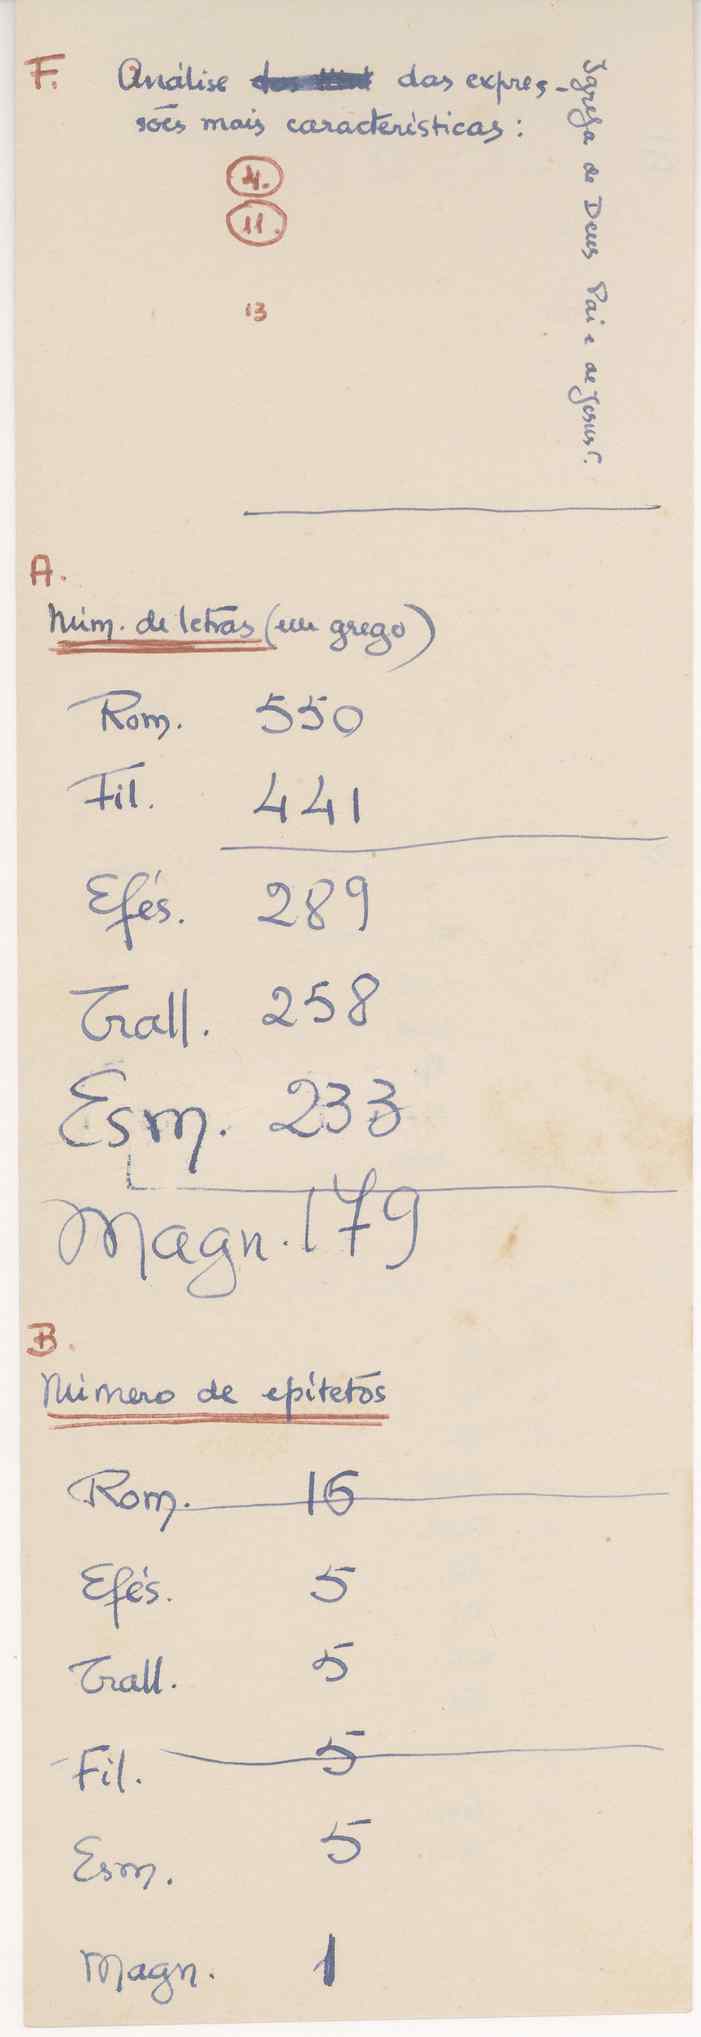 F. Análise das expres-
sões mais características:
4.
11.
13
Igreja de Deus Pai e de Jesus C.
A.
Núm. de letras (em grego)
Rom. 550
Fil. 441
Efés. 289
Trall. 258
Esm. 233
Magn. 179
B.
Número de epítetos
Rom. 16
Efés. 5
Trall. 5
Fil. 5
Esm. 5
Magn. 1